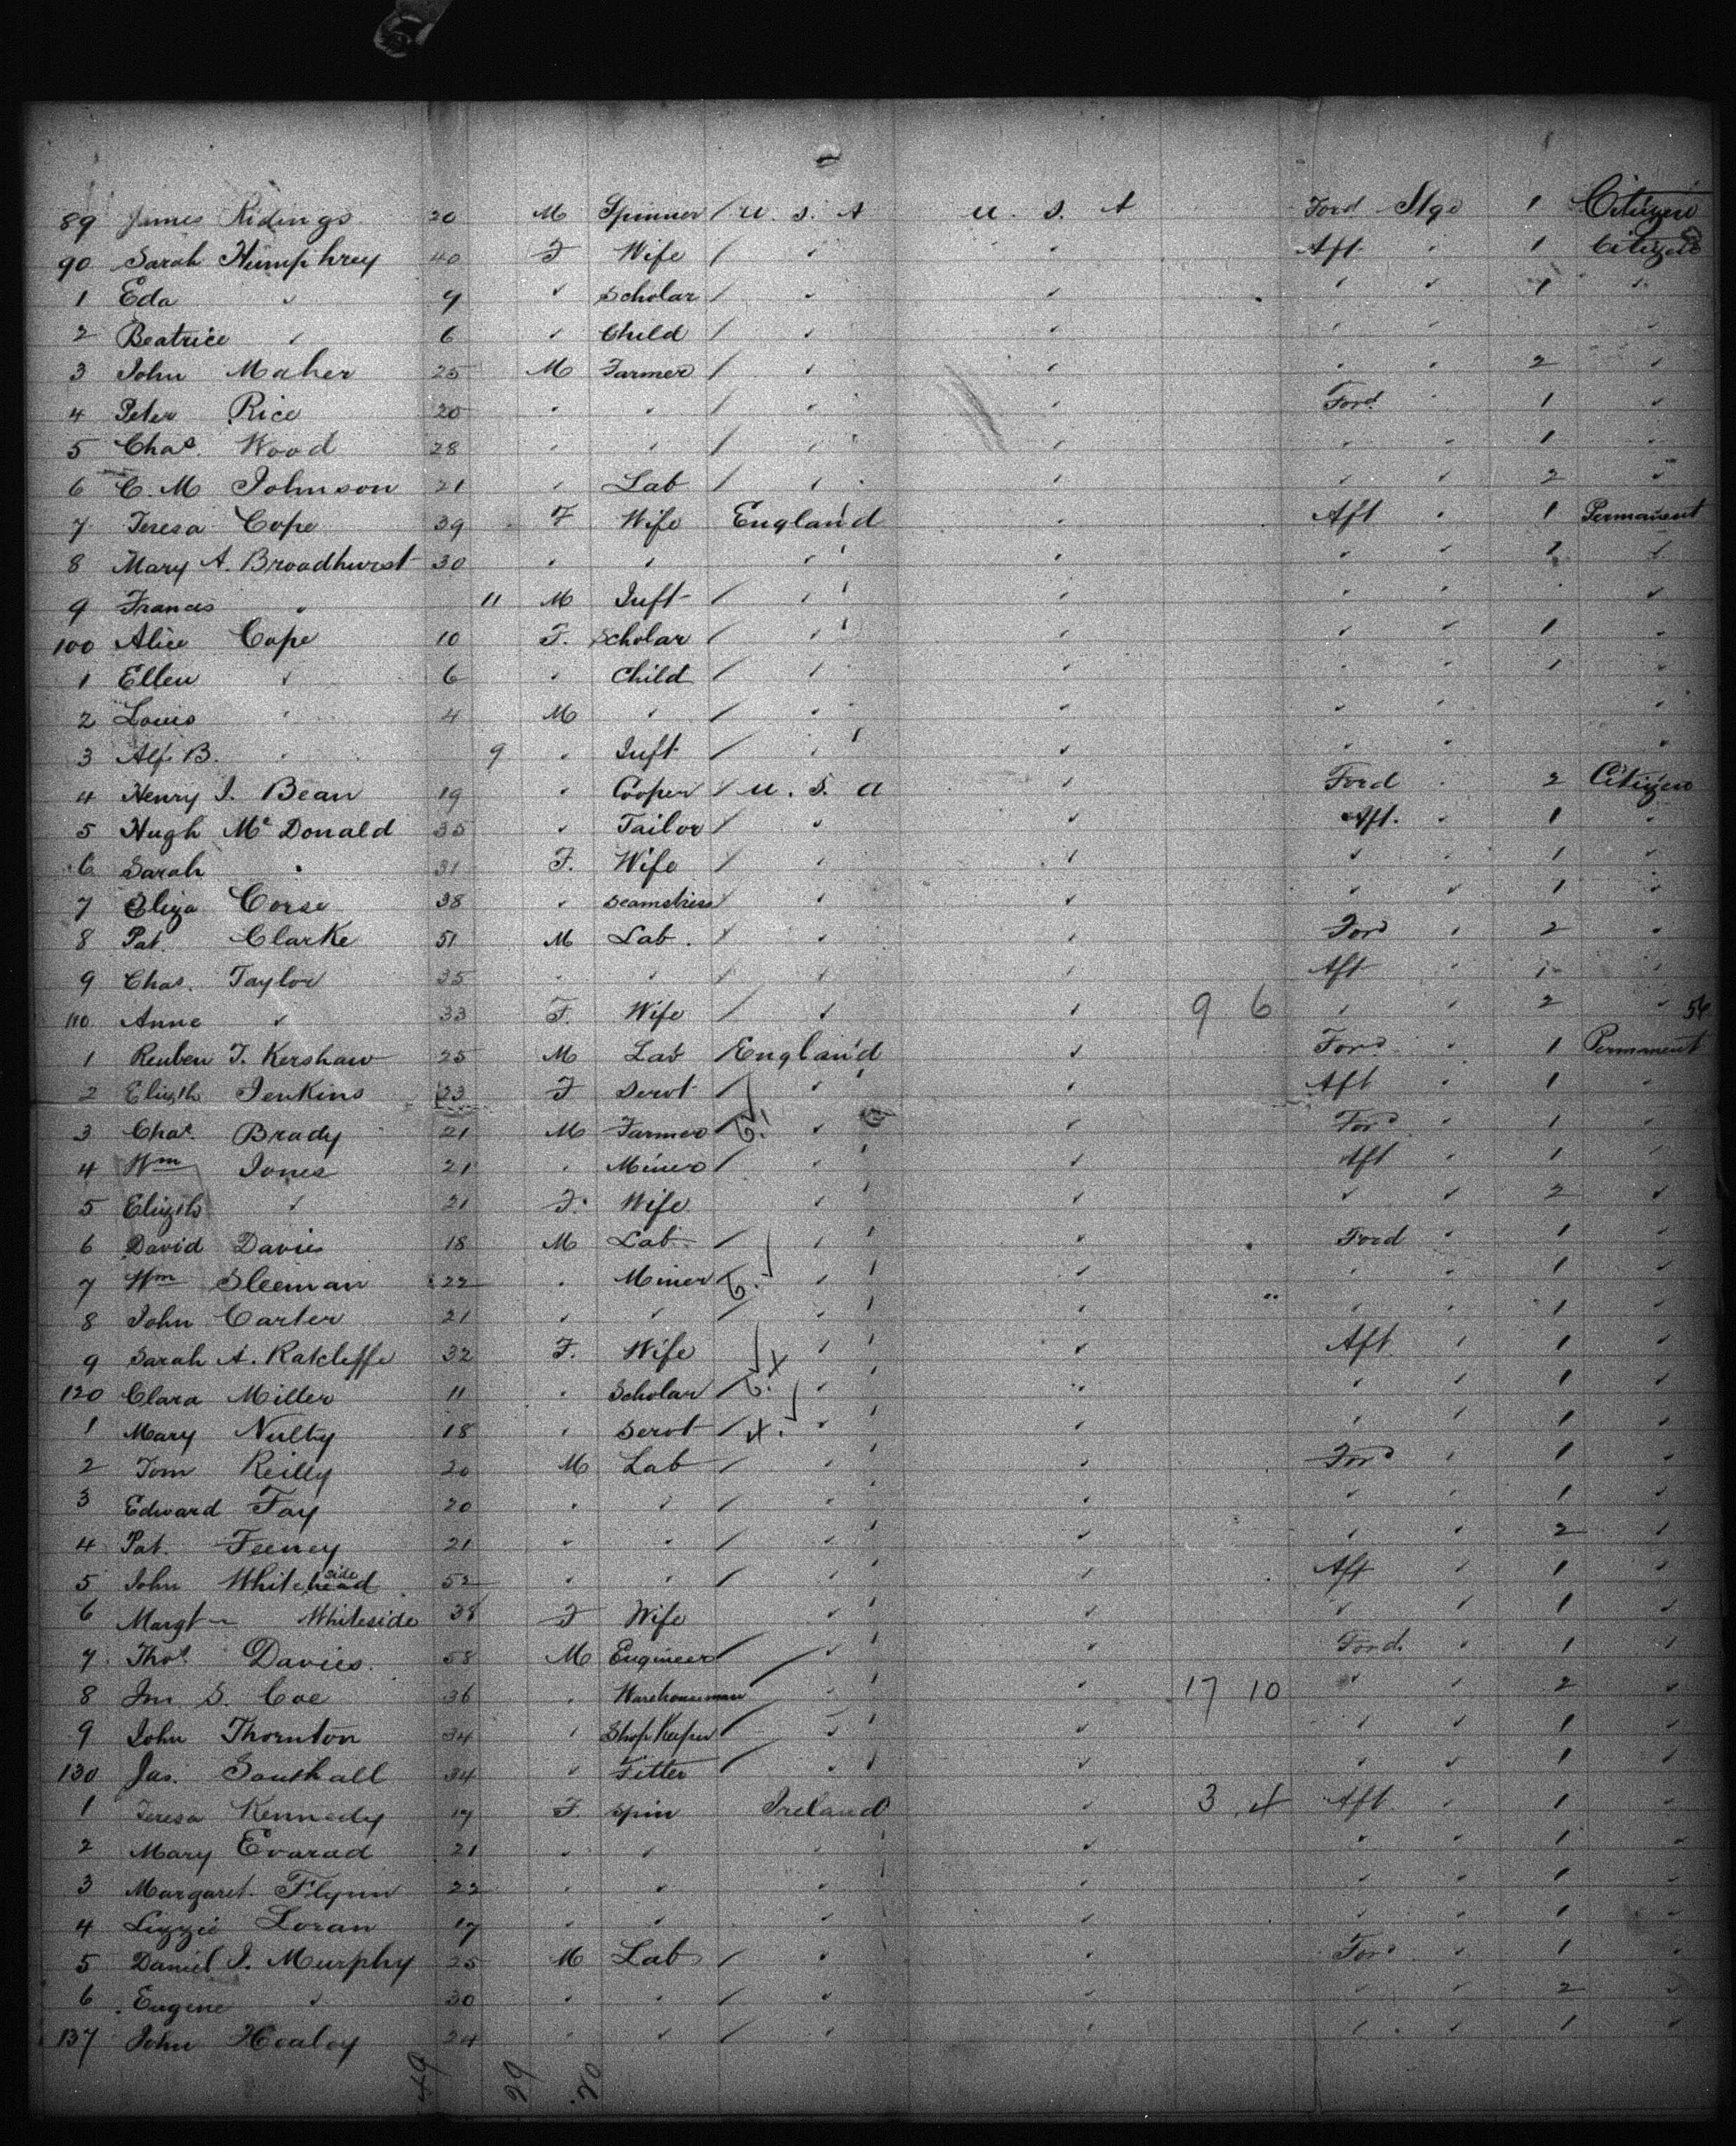 89 James Ridings 20 M Spinner / U. S. A U. S. A Ford Stge 1 Citizen
90 Sarah Humphrey 40 F Wife / " " Aft " 1 Citizen
1 Eda " 9 " Scholar / " " " " 1 "
2 Beatrice " 6 " Child / " " " " "
3 John Maher 25 M Farmer / " " " " 2 "
4 Peter Rice 20 " " / " " Ford " 1 "
5 Chas. Wood 28 " " / " " " " 1 "
6 C. M Johnson 21 " Lab / " " " " 2 "
7 Teresa Cope 39 F Wife England " Aft " 1 Permanent
8 Mary A. Broadhurst 30 " " " " " " 1 "
9 Francis " 11 M Inft / " " " " "
100 Alice Cope 10 F. Scholar / " " " " 1 "
1 Ellen " 6 " Child / " " " " 1 "
2 Louis " 4 M " / " " " " "
3 Alf B. " 9 " Inft / " " " " "
4 Henry J. Bean 19 " Cooper / U. S. a " Ford " 2 Citizen
5 Hugh Mc Donald 35 " Tailor / " " Aft. " 1 "
6 Sarah " 31 F. Wife / " " " " 1 "
7 Eliza Corse 38 " Seamstress / " " " " 1 "
8 Pat. Clarke 51 M Lab. / " " Ford " 2 "
9 Chas. Taylor 35 " " / " " Aft " 1 "
110 Anne " 33 F. Wife / " " 9 6 " " 2 "
1 Reuben T. Kershaw 25 M Lab / England " Ford " 1 Permanent
2 Elizth Jenkins 23 F Servt / " " Aft " 1 "
3 Chas. Brady 21 M Farmer / " " Ford " 1 "
4 Wm Jones 21 " Miner / " " Aft " 1 "
5 Elizth " 21 F. Wife " " " " 2 "
6 David Davis 18 M Lab / " " Ford " 1 "
7 Wm Sleeman 22 " Miner / " " " " 1 "
8 John Carter 21 " " / " " " " 1 "
9 Sarah A. Ratcliffe 32 F. Wife " " Aft " 1 "
120 Clara Miller 11 " Scholar / " " " " 1 "
1 Mary Nulty 18 " Servt / x. " " " " 1 "
2 Tom Reilly 20 M Lab / " " Ford " 1 "
3 Edward Fay 20 " " / " " " " 1 "
4 Pat. Feeney 21 " " / " " " " 2 "
5 John Whitehead side 52 " " / " " Aft " 1 "
6 Margt Whiteside 38 F Wife " " " " 1 "
7 Thos. Davies 58 M Engineer / " " Ford. " 1 "
8 Jno S. Coe 36 " Warehouseman " " 17 10 " " 2 "
9 John Thornton 34 " Shop Keeper / " " " " 1 "
130 Jas. Southall 34 " Fitter / " " " " 1 "
1 Teresa Kennedy 17 F. Spin Ireland " 3 4 Aft. " 1 "
2 Mary Evarad 21 " " " " " " 1 "
3 Margaret Flynn 22 " " " " " " 1 "
4 Lizzie Loran 17 " " " " " " 1 "
5 Daniel J. Murphy 25 M Lab / " " Ford " 1 "
6 Eugene " 30 " " / " " " " 2 "
137 John Healey 24 " " / " " " " 1 "
49 29 20